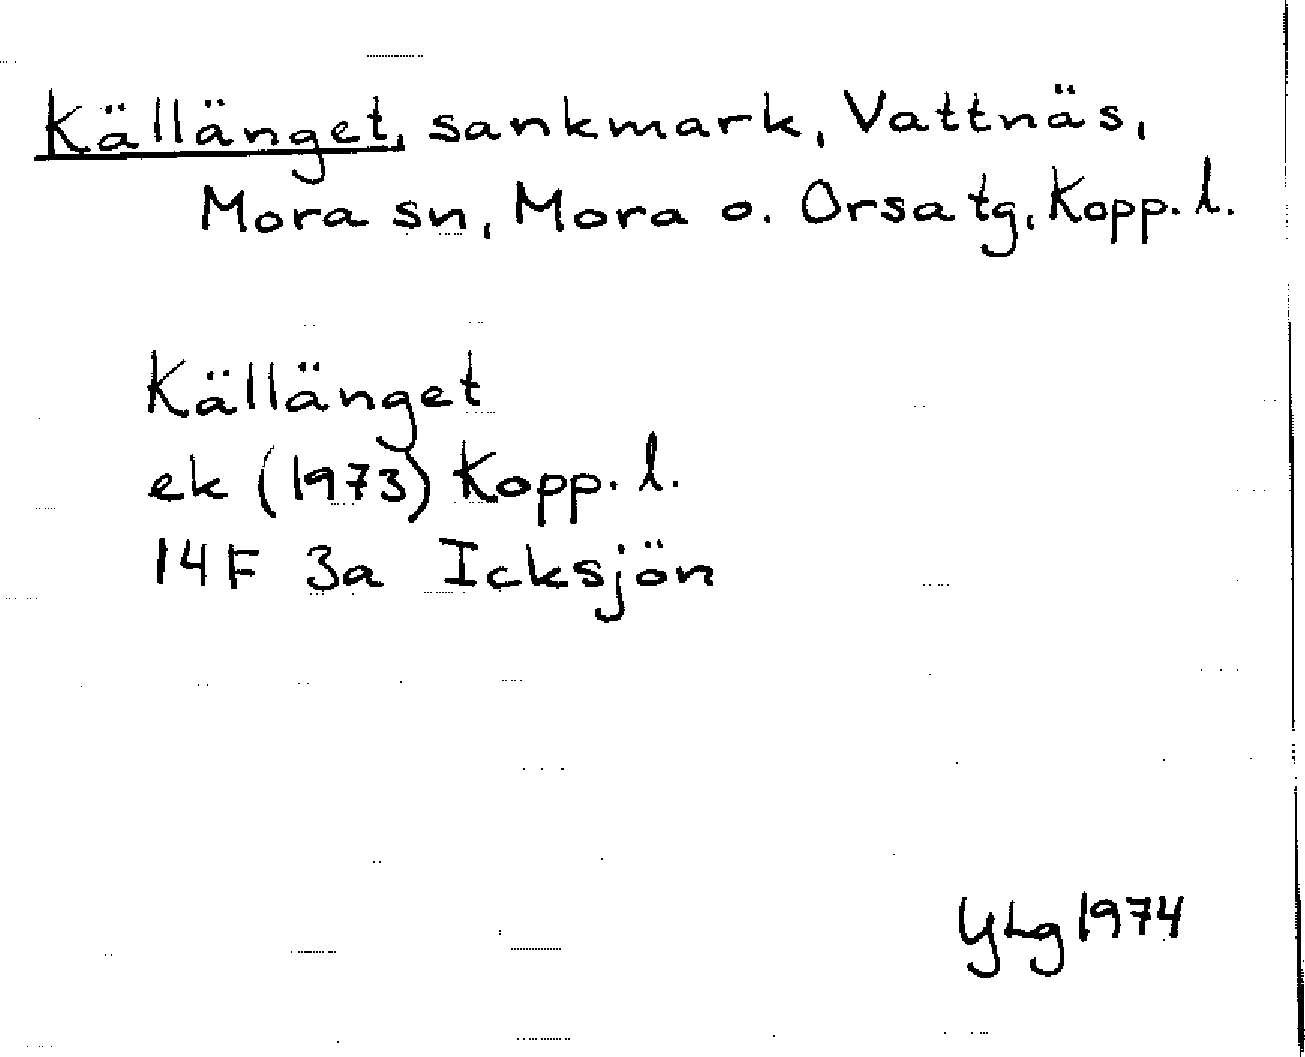 Källänget, sankmark, Vattnäs,
Mora sn, Mora o. Orsa tg, Kopp. l.
Källänget
ek (1973) Kopp. l.
14F 3a Icksjön
YLg 1974